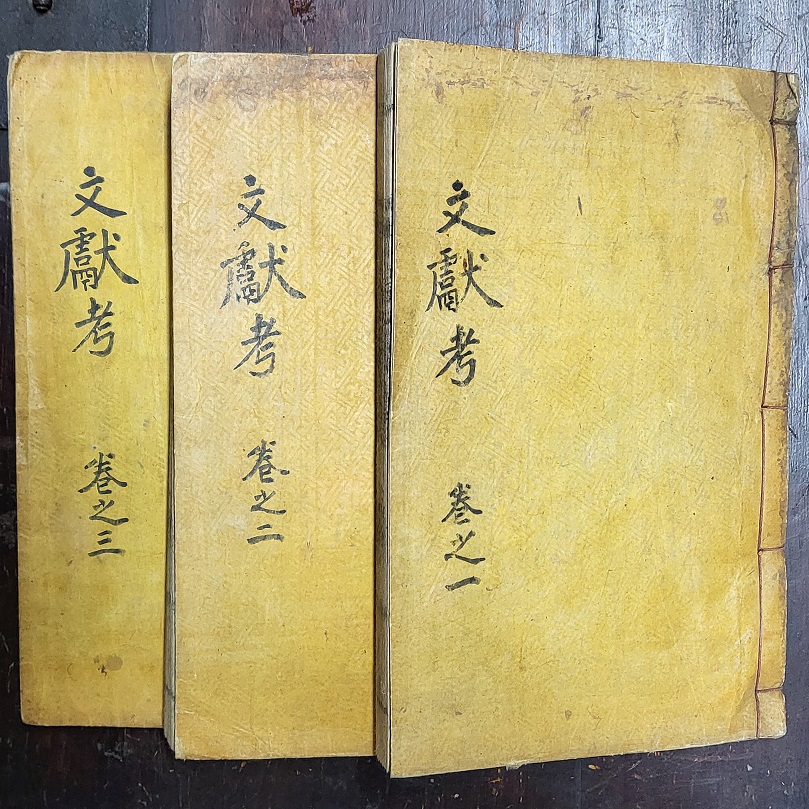 文獻考 卷之一
文獻考 卷之二
文獻考 卷之三